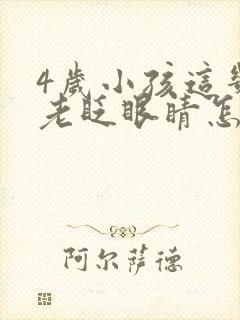 4歲小孩這
老眨眼睛怎
阿尔萨德